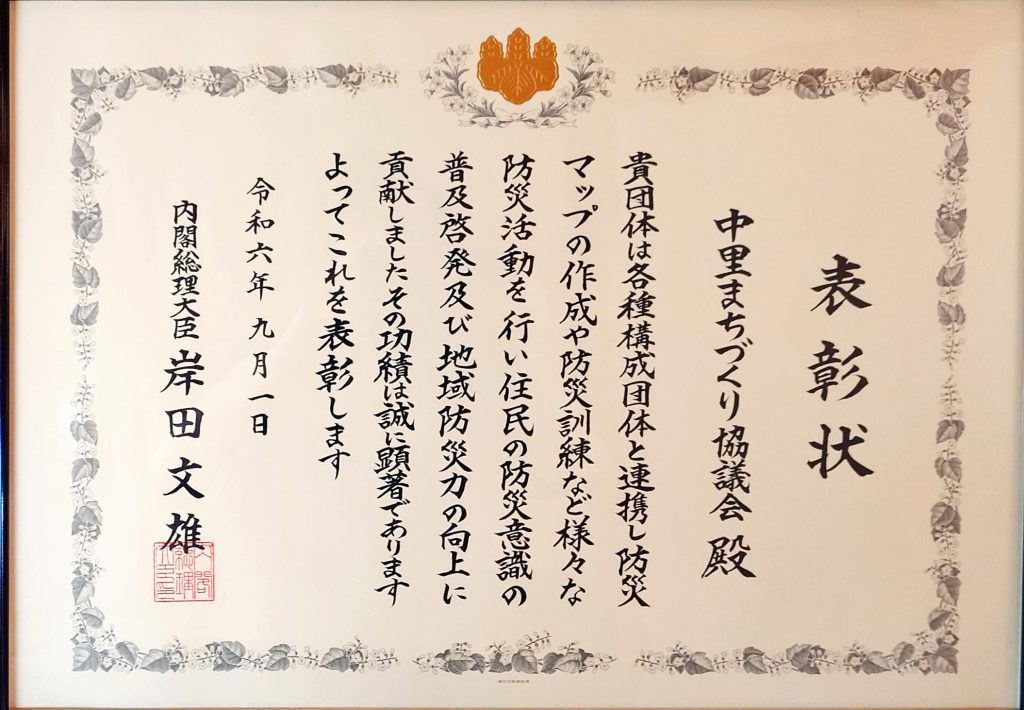 表彰状
中里まちづくり協議会 殿
貴団体は各種構成団体と連携し防災
マップの作成や防災訓練など様々な
防災活動を行い住民の防災意識の
普及啓発及び地域防災力の向上に
貢献しましたその功績は誠に顕著であります
よってこれを表彰します
令和六年九月一日
内閣総理大臣 岸田文雄